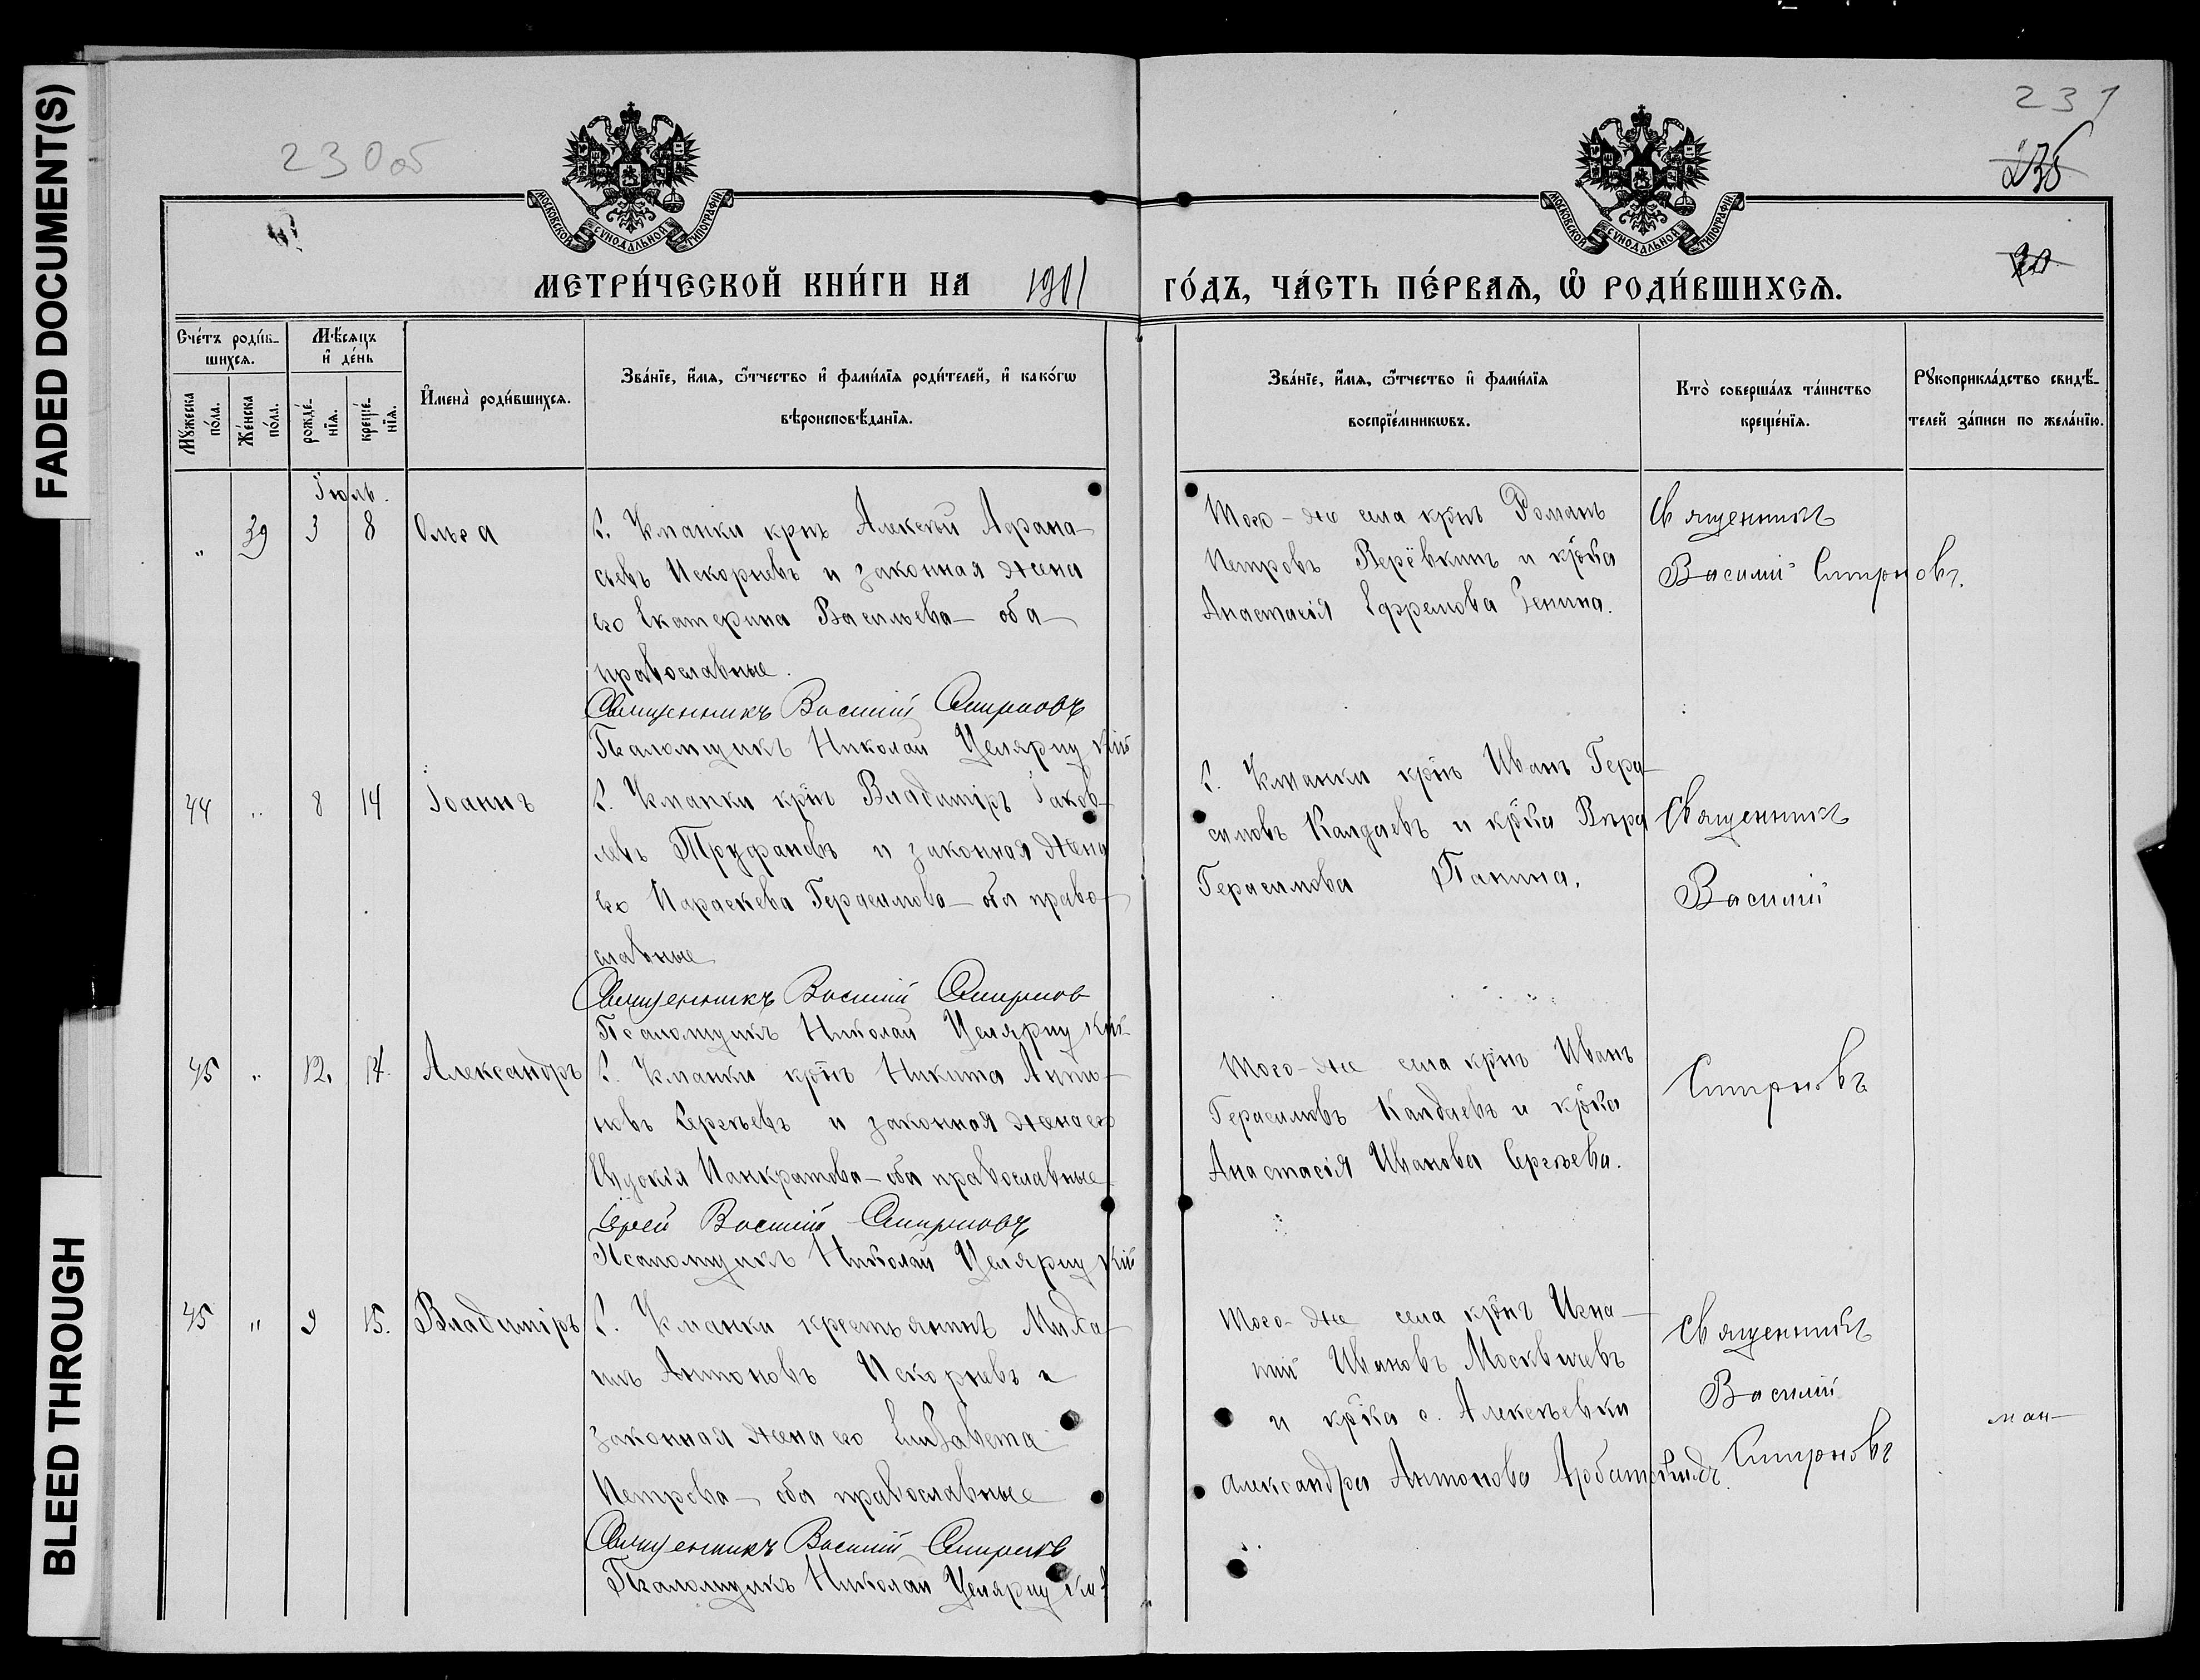 FADED DOCUMENT(S)
BLEED THROUGH
230об
231
235
МОСКОВСКОЙ СУНОДАЛЬНОЙ ТИПОГРАФІИ
МОСКОВСКОЙ СУНОДАЛЬНОЙ ТИПОГРАФІИ
МЕТРИ́ЧЕСКОЙ КНИ́ГИ НА 1901 ГО́ДЪ, ЧА́СТЬ ПЕ́РВАѦ, Ѡ РОДИ́ВШИХСѦ.
Сче́тъ роди́в-
шихсѧ.
Мꙋ́жеска по́ла.
Же́нска по́ла.
Мѣ́сѧцъ
и҆ де́нь
рожде́-
нїѧ.
креще́-
нїѧ.
И҆мена̀ роди́вшихсѧ.
Зва́нїе, и҆́мѧ, ѻ҆́тчество и҆ фами́лїѧ роди́телей, и҆ како́гѡ
вѣроисповѣ́данїѧ.
Зва́нїе, и҆́мѧ, ѻ҆́тчество и҆ фами́лїѧ
воспрїе́мникѡвъ.
Кто̀ соверша́лъ та́инство
креще́нїѧ.
Рꙋкоприкла́дство свидѣ́-
телей за́писи по жела́нїю.
Іюль.
" 39 3 8 Ольга
С. Уманки крнъ Алексѣй Афана-
сьевъ Искорневъ и законная жена
его Екатерина Васильева — оба
православные.
Священникъ Василій Смирновъ
Псаломщикъ Николай
Того-же села крнъ Романъ
Петровъ Верёвкинъ и крка
Анастасія Ефремова Генина.
Священникъ
Василій Смирновъ.
44 " 8 14 Іоаннъ
С. Уманки крнъ Владиміръ Іаков-
левъ Труфановъ и законная жена
его Параскева Герасимова — оба право-
славные
Священникъ Василій Смирнов
Псаломщикъ Николай
С. Уманки крнъ Иванъ Гера-
симовъ Калдаевъ и крка Вѣра
Герасимова Панина.
Священникъ
Василій
Смирновъ
45 " 12. 14. Александръ
С. Уманки крнъ Никита Анто-
новъ Сергѣевъ и законная жена его
Евдокія Панкратова — оба православные
Іерей Василій Смирновъ
Псаломщикъ Николай
Того-же села крнъ Иванъ
Герасимовъ Калдаевъ и крка
Анастасія Иванова Сергѣева.
45 " 9 15. Владиміръ
С. Уманки крестьянинъ Миха-
илъ Антоновъ Искорневъ и
законная жена его Елизавета
Петрова — оба православные
Священникъ Василій Смирнов
Псаломщикъ Николай
Того-же села крнъ Игна-
тій Ивановъ Москвичевъ
и крка с. Алексѣевки
Александра Антонова
Священникъ
Василій
Смирновъ